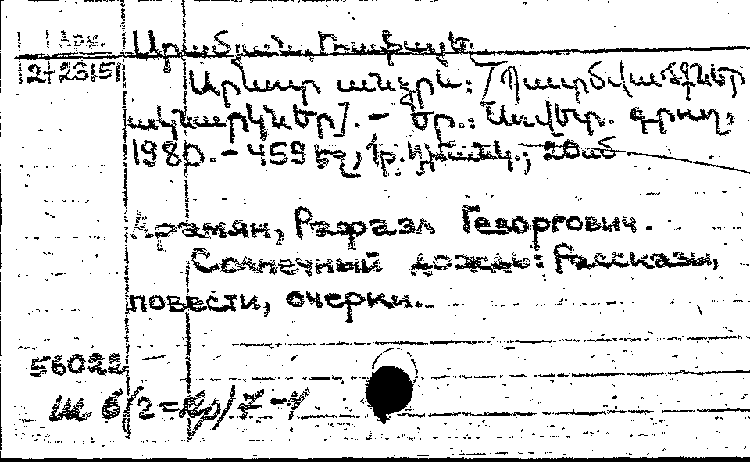 Арм.
Արամյան, Ռաֆայել.
2-23151
Արևոտ անձրև: [Պատմվածքներ
ակնարկներ]. – Եր.: Սովետ. գրող,
1980. – 459 էջ, 20սմ.
Арамян, Рафаэл Геворгович.
Солнечный дождь: Рассказы,
повести, очерки.
56022